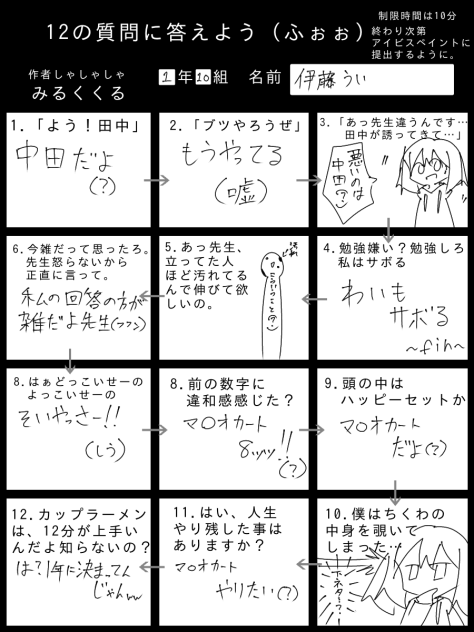 12の質問に答えよう(ふぉぉ)
制限時間は10分
終わり次第
アイビスペイントに
提出するように。
作者しゃしゃしゃ
みるくくる
1年10組 名前 伊藤うい
1.「よう!田中」
中田だよ
(?)
2.「ブツやろうぜ」
もうやってる
(嘘)
3.「あっ先生違うんです…
田中が誘ってきて…」
悪いのは
中田(?)
4.勉強嫌い?勉強しろ
私はサボる
わいも
サボる
~fin~
5.あっ先生、
立ってた人
ほど汚れてる
んで伸びて欲
しいの。
こういうこと(?)
6.今雑だって思ったろ。
先生怒らないから
正直に言って。
私の回答の方が
雑だよ先生(つつつ)
8.はぁどっこいせーの
よっこいせーの
そいやっさー!!
(しう)
8.前の数字に
違和感感じた?
マ〇オカート
8ッッ!!
(?)
9.頭の中は
ハッピーセットか
マ〇オカート
だよ(?)
10.僕はちくわの
中身を覗いて
しまった…
下ネタ~?!
11.はい、人生
やり残した事は
ありますか?
マ〇オカート
やりたい(?)
12.カップラーメン
は、12分が上手い
んだよ知らないの?
は?1年に決まってん
じゃんw